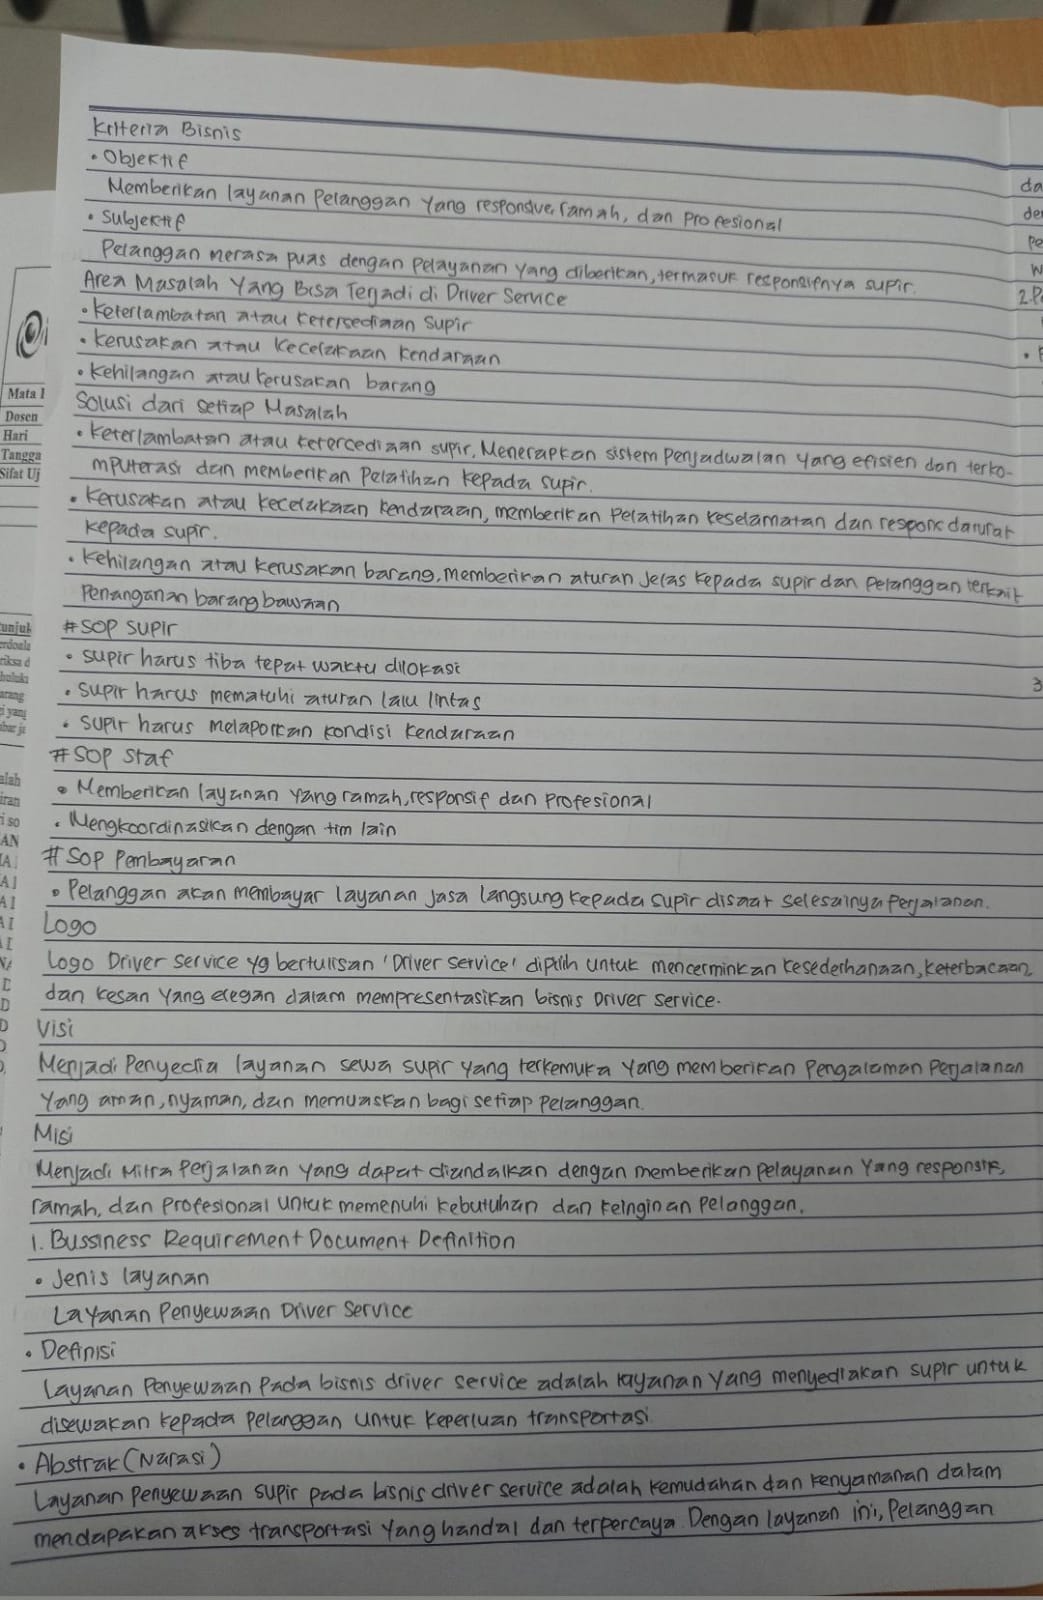 Kriteria Bisnis
• Objektif
Memberikan layanan pelanggan yang responsive, ramah, dan profesional
• Subjektif
Pelanggan merasa puas dengan pelayanan yang diberikan, termasuk responsifnya supir.
Area Masalah Yang Bisa Terjadi di Driver Service
• Keterlambatan atau ketersediaan supir
• Kerusakan atau kecelakaan kendaraan
• Kehilangan atau kerusakan barang
Solusi dari setiap Masalah
• Keterlambatan atau ketercediaan supir, Menerapkan sistem penjadwalan yang efisien dan terko-
mputerasi dan memberikan pelatihan kepada supir.
• Kerusakan atau kecelakaan kendaraan, memberikan pelatihan keselamatan dan respons darurat
kepada supir.
• Kehilangan atau kerusakan barang, memberikan aturan jelas kepada supir dan pelanggan terkait
penanganan barang bawaan
#SOP Supir
• supir harus tiba tepat waktu dilokasi
• supir harus mematuhi aturan lalu lintas
• supir harus melaporkan kondisi kendaraan
#SOP Staf
• Memberikan layanan yang ramah, responsif dan profesional
• Mengkoordinasikan dengan tim lain
#SOP Pembayaran
• Pelanggan akan membayar layanan jasa langsung kepada supir disaat selesainya perjalanan.
Logo
Logo Driver Service yg bertulisan 'Driver Service' dipilih untuk mencerminkan kesederhanaan, keterbacaan,
dan kesan yang elegan dalam mempresentasikan bisnis Driver Service.
Visi
Menjadi Penyedia layanan sewa supir yang terkemuka yang memberikan pengalaman perjalanan
yang aman, nyaman, dan memuaskan bagi setiap pelanggan.
Misi
Menjadi mitra perjalanan yang dapat diandalkan dengan memberikan pelayanan yang responsif,
ramah, dan profesional untuk memenuhi kebutuhan dan keinginan pelanggan.
1. Bussiness Requirement Document Definition
• Jenis layanan
Layanan Penyewaan Driver Service
• Definisi
Layanan Penyewaan pada bisnis driver service adalah layanan yang menyediakan supir untuk
disewakan kepada pelanggan untuk keperluan transportasi
• Abstrak (Narasi)
Layanan penyewaan supir pada bisnis driver service adalah kemudahan dan kenyamanan dalam
mendapakan akses transportasi yang handal dan terpercaya. Dengan layanan ini, pelanggan
Dosen
Hari
Tangga
Sifat Uj